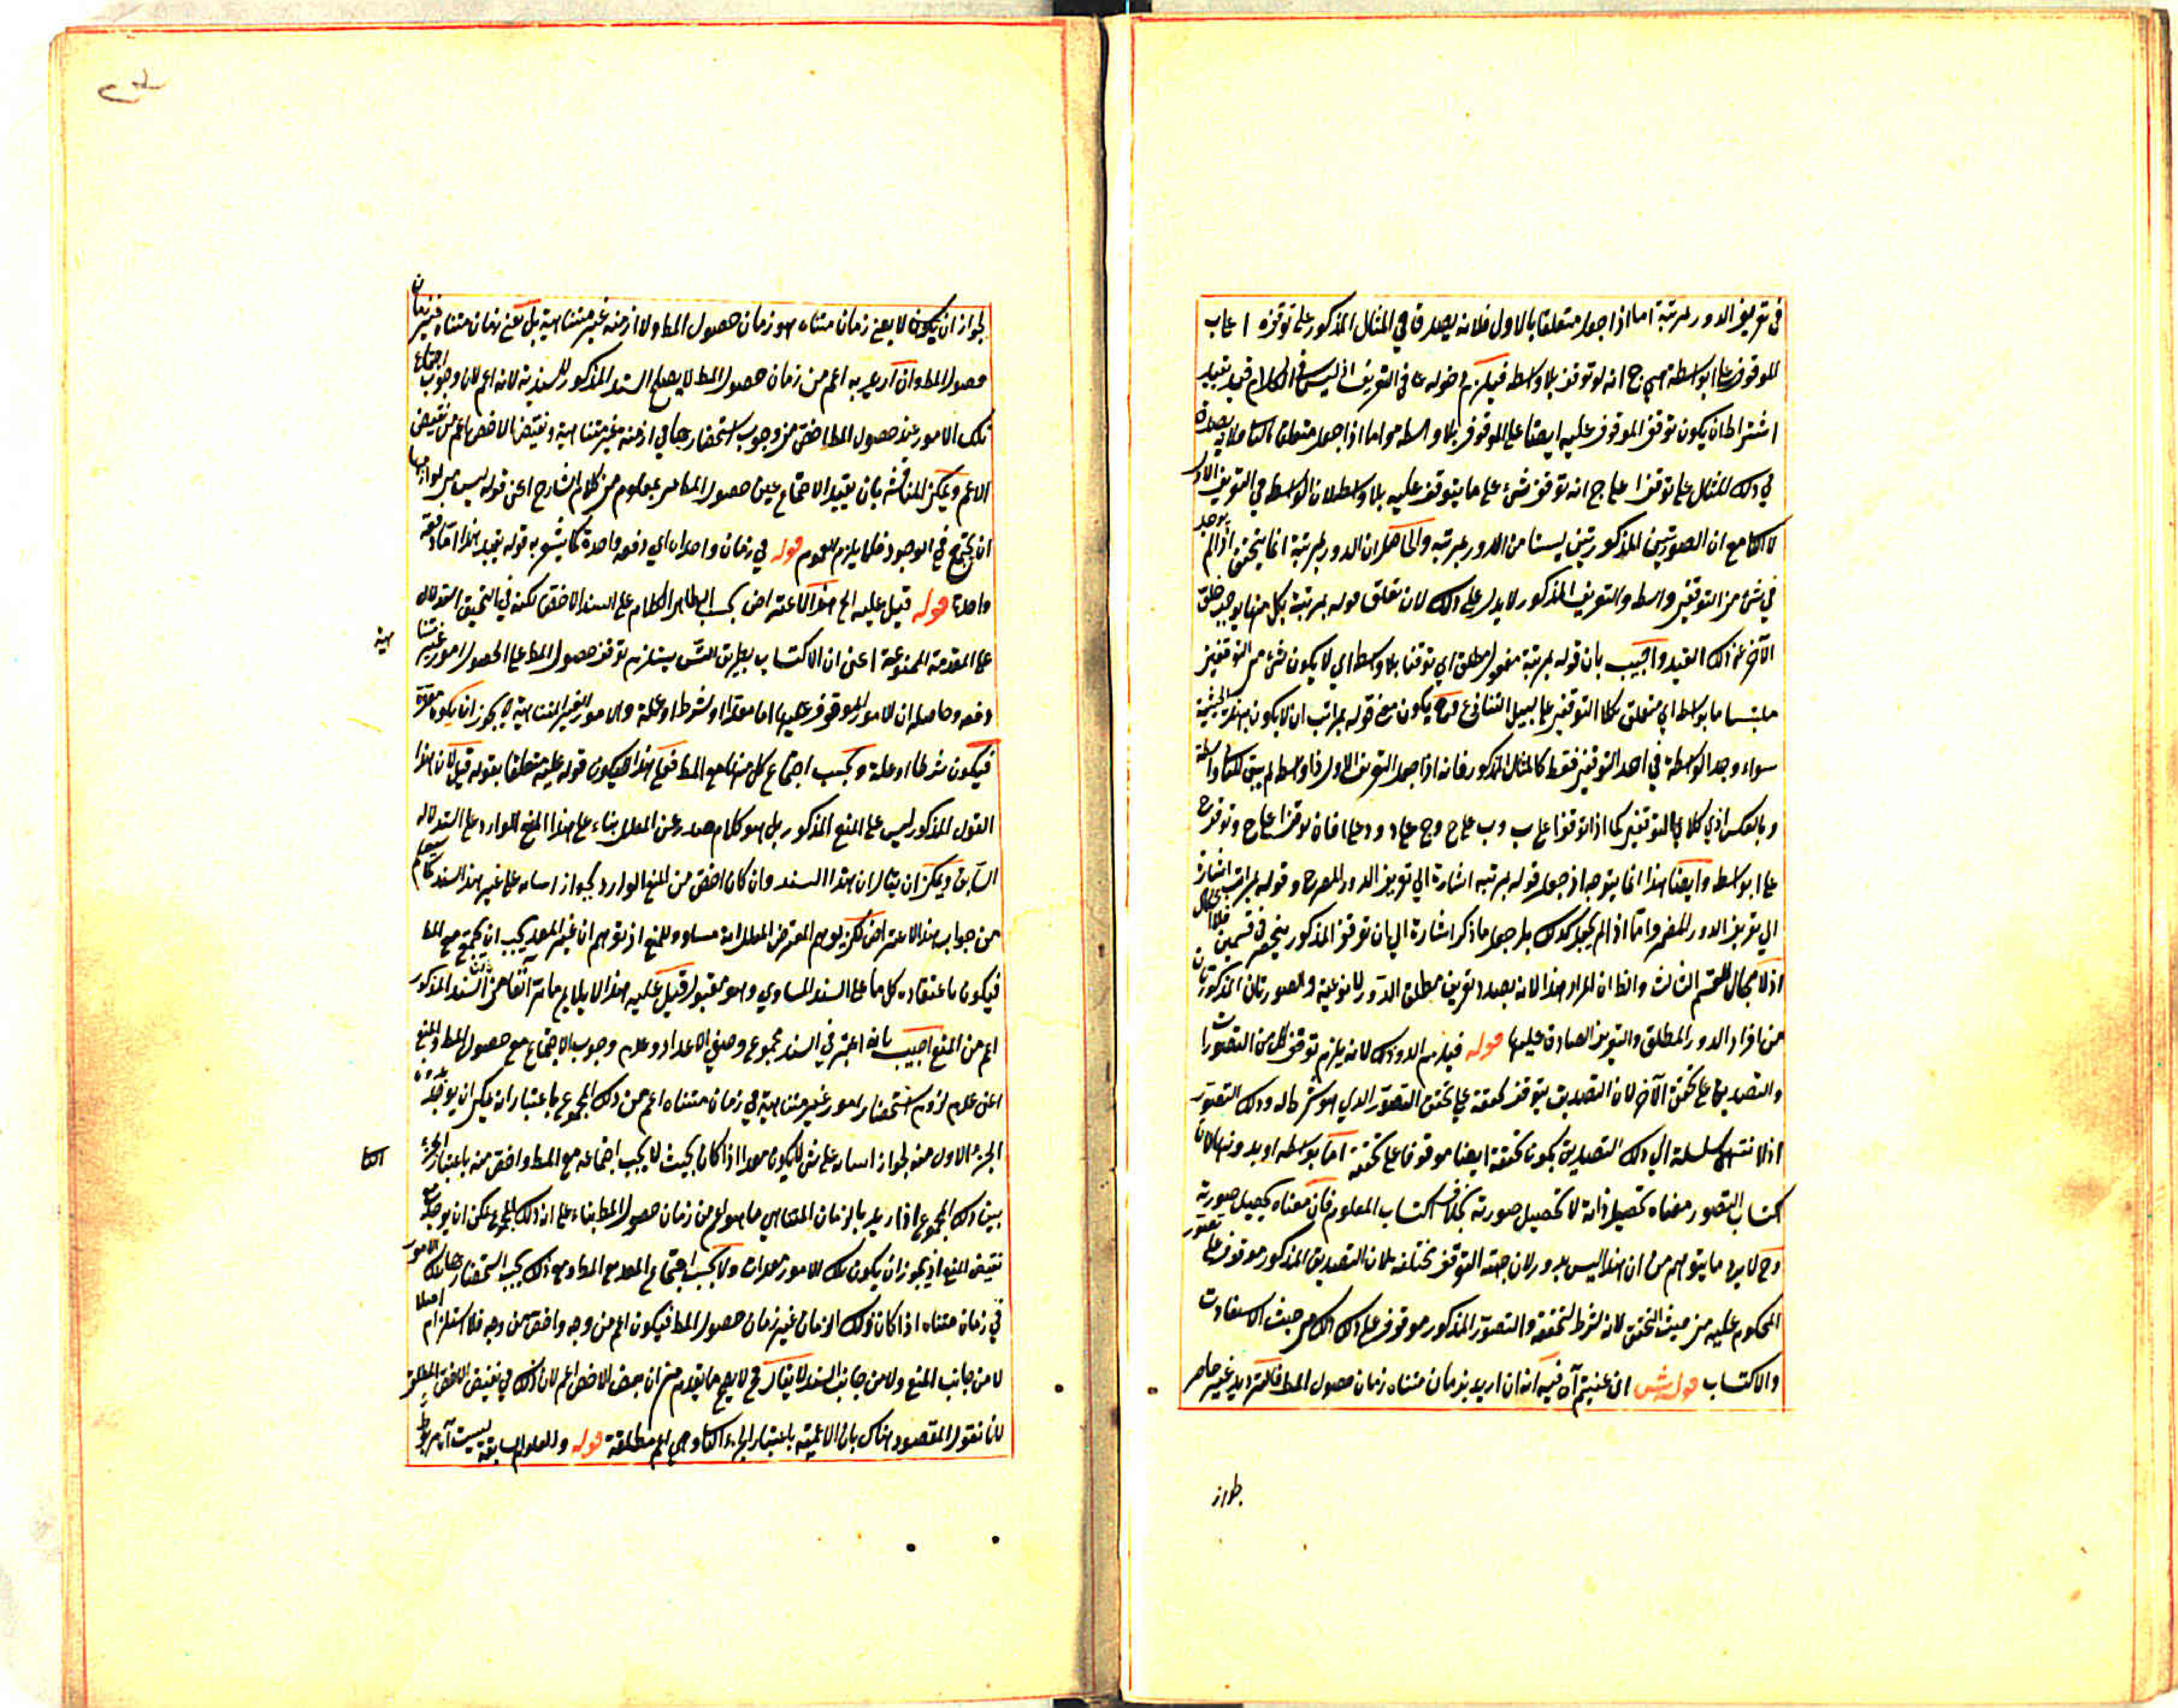 في تعريف الدور بمرتبة اما اذا جعل متعلقا بالاول فلانه يصدق في المثال المذكور على توقف ا على ب
الموقوف على ا بواسطة ج انه توقف بلا واسطة فيلزم دخوله في التعريف اذ ليس في الكلام قيد يفيد
اشتراط ان يكون توقف الموقوف عليه ايضا على الموقوف بلا واسطة واما اذا جعل متعلقا بالثاني فلا يصدق
في ذلك المثال على توقف ا على ج انه توقف شئ على ما يتوقف عليه بلا واسطة لان الواسطة في التوقف الاول
لا الثا مع ان الصورتين المذكورتين ليستا من الدور بمرتبة والحاصل ان الدور بمرتبة انما يتحقق اذا لم يوجد
في شئ من التوقفين واسطة والتعريف المذكور لا يدل على ذلك لان تعلق قوله بمرتبة بكل منهما يوجب خلو
الآخر عن ذلك القيد واجيب بان قوله بمرتبة مفعول مطلق اي توقفا بلا واسطة اي لا يكون شئ من التوقفين
ملتبسا بواسطة اي متعلق بكلا التوقفين على سبيل التنازع وح يكون معنى قوله بمراتب ان لا يكون بهذه الحيثية
سواء وجد الواسطة في احد التوقفين فقط كالمثال المذكور فانه اذا جعل التوقف الاول ذا واسطة لم يبق للثا واسطة
وبالعكس اذ في كلا التوقفين كما اذا توقف ا على ب وب على ج وج على د ود على ا فان توقف ا على ج وتوقف ج
على ا بواسطة وايضا هذا انما يتوجه اذا جعل قوله بمرتبة اشارة الى تعريف الدور المصرح وقوله بمراتب اشارة
الى تعريف الدور المضمر واما اذا لم يجعل كذلك بل جعل ما ذكر اشارة الى ان توقف المذكور منحصر في قسمين فلا اشكال
اذ لا مجال للقسم الثالث والظ ان المراد هذا لانه بصدد تعريف مطلق الدور لا نوعيه والصورتان المذكورتان
من افراد الدور المطلق والتعريف الصادق عليها قوله فيلزم الدور وذلك لانه يلزم توقف كل من التصورات
والتصديق على تحقق الآخر لان التصديق يتوقف تحققه على تحقق التصور الذي هو شرط له وذلك التصور
اذا انتهى سلسلة الى ذلك التصديق يكون تحققه ايضا موقوفا على تحققه اما بواسطة او بدونها لان
اكتساب التصور معناه تحصيل ذاته لا تحصيل صورته بخلاف اكتساب المعلوم فان معناه تحصيل صورته
وح لا يرد ما يتوهم من ان هذا ليس بدور لان جهة التوقف مختلفة لان التصديق المذكور موقوف على تصور
المحكوم عليه من حيث التحقق لانه شرط لتحققه والتصور المذكور موقوف على ذلك من حيث الاستفادة
والاكتساب قوله ش ان عنيتم آه فيه انه ان اريد بزمان متناه زمان حصول المط فالحصر غير حاصر
لجواز
لجواز ان يكون لا يعني زمان متناه هو زمان حصول المط ولا ازمنة غير متناهية بل يعني زمان متناه غير زمان
حصول المط وان اريد به اعم من زمان حصول المط لا يصلح السند المذكور للسندية لانه اعم لان وجوب اجتماع
تلك الامور عند حصول المط اخص من وجوب استحضارها في ازمنة غير متناهية ونقيض الاخص اعم من نقيض
الاعم ويمكن المناقشة بان يقيد الاجتماع حين حصول المط معلوم من كلام الشارح اعني قوله ليس من لوازمها
ان يجتمع في الوجود قوله في زمان واحد اي دفعة واحدة كما يشعر به قوله بعيد هذا اما دفعة
واحدة قوله قيل عليه الخ هذا الاعتراض بحسب الظاهر الكلام على السند الاخص لكنه في التحقيق استدلال
على المقدمة الممنوعة اعني ان الاكتساب بطريق التس يستلزم توقف حصول المط على الحصول امور غير متنا
هية
دفعة وحاصله ان الامور الموقوف عليها اما معدا او شرط او علة والامور الغير المتناهية لا يجوز ان يكون معدة
فيكون شرطا او علة ويجب اجتماع كل منهما مع المط فعلى هذا يكون قوله عليه متعلقا بقوله قيل لان هذا
القول المذكور ليس على المنع المذكور بل هو كلام صدر عن المعلل بناء على هذا المنع الوارد على استدلاله
السابق ويمكن ان يقال ان هذا السند وان كان اخص من المنع الوارد لجواز اسناده على غير هذا السند كما سيعلم
من جواب هذا الاعتراض لكن يوهم المعترض المعلل انه مساو للمنع اذ توهم ان غير المعد يجب ان يجتمع مع المط
فيكون باعتقاده كلاما على السند المساوي وهو مقبول قيل عليه هذا لا يلايم ما مر آنفا من ان السند المذكور
اعم من المنع اجيب بانه اعتبر في السند مجموع وصفي الاعداد وعدم وجوب الاجتماع مع حصول المط والمنع
اعني عدم لزوم استحضار امور غير متناهية في زمان متناه اعم من ذلك المجموع باعتبار انه يمكن ان يوجد بدون
الجزء الاول منه لجواز اسناده على شئ لا يكون معدا اذا كان بحيث لا يجب اجتماعه مع المط واخص منه باعتبار الجزء
الثا
بين ذلك المجموع اذا اريد بالزمان المتناهي ما هو اعم من زمان حصول المط بناء على ان ذلك المجموع يمكن ان يوجد مع
نقيض المنع اذ يجوز ان يكون تلك الامور معدات ولا يجب اجتماع المعد مع المط ومع ذلك يجب استحضار تلك الامور
في زمان متناه اذا كان ذلك الزمان غير زمان حصول المط فيكون اعم من وجه واخص من وجه فلا استلزام اصلا
لا من جانب المنع ولا من جانب السند لا يقال فح لا يصح ما تقدم من ان نقيض الاخص اعم لان ذلك في نقيض الاخص المطلق
لانا نقول المقصود هناك بيان الاعمية باعتبار الجزء الثا وهي اعم مطلقة قوله والعلوم السابقة ليست آه مربوط